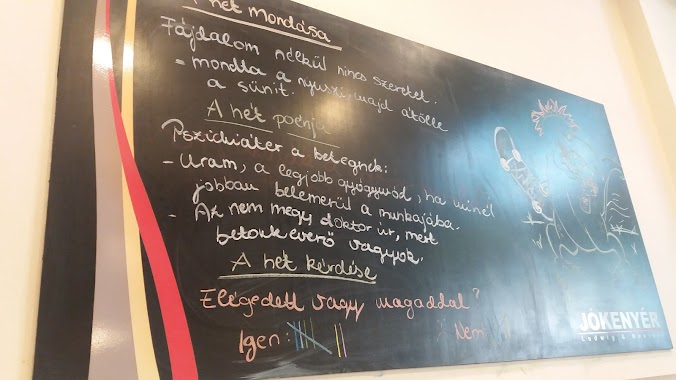 A hét mondása
Fájdalom nélkül nincs szeretet.
- mondta a nyuszi, majd átölelte
a sünit.
A hét poénja
Pszichiáter a betegnek:
- Uram, a legjobb gyógymód, ha minél
jobban belemerül a munkájába.
- Az nem megy doktor úr, mert
betonkeverő vagyok.
A hét kérdése
Elégedett vagy magaddal?
Igen: Nem
JÓKENYÉR